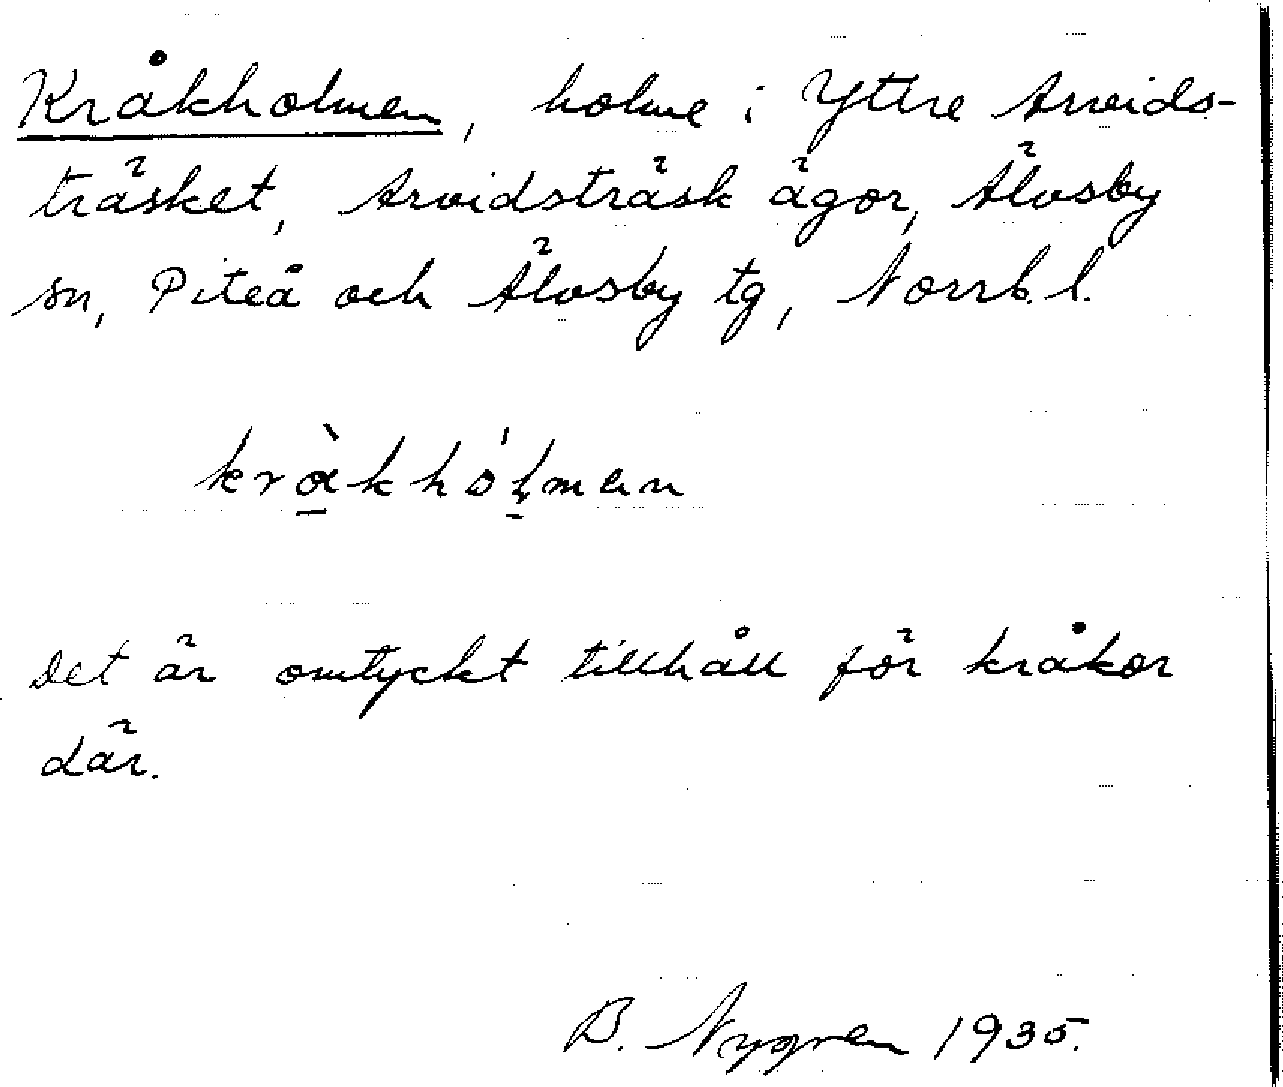 Kråkholmen, holme i Yttre Arvids-
träsket, Arvidsträsk ägor, Älvsby
sn, Piteå och Älvsby tg, Norrb. l.
kràkhólman
Det är omtyckt tillhåll för kråkor
där.
B. Nygren 1935.